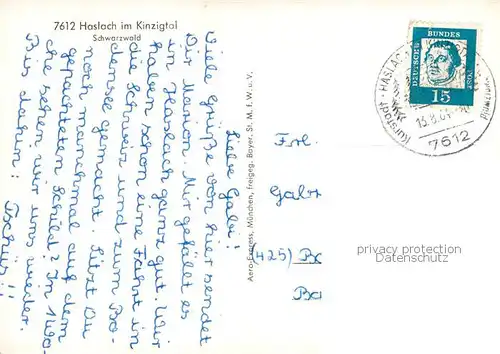 7612 Haslach im Kinzigtal
Schwarzwald
Liebe Gabi!
Viele Grüße von hier sendet
Dir Marion. Mir gefällt es
in Haslach ganz gut. Wir
haben schon eine Fahrt in
die Schweiz und zum Bo-
densee gemacht. Sitzt Du
noch manchmal auf dem
gepachteten Schild? In 1 Wo-
che sehen wir uns wieder.
Bis dahin: Tschüs!!
Aero-Express, München, freigeg. Bayer. St. M. F. W. u. V.
DEUTSCHE BUNDESPOST
15
HASLACH
Kurstadt
7612
Frl.
Gabi
(425) Bo
Bo
privacy protection
Datenschutz